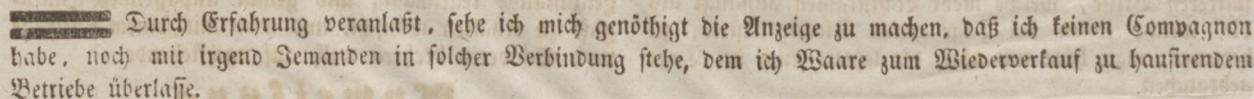 Durch Erfahrung veranlaßt, sehe ich mich genöthigt die Anzeige zu machen, daß ich keinen Compagnon
habe, noch mit irgend Jemanden in solcher Verbindung stehe, dem ich Waare zum Wiederverkauf zu hausirendem
Betriebe überlasse.